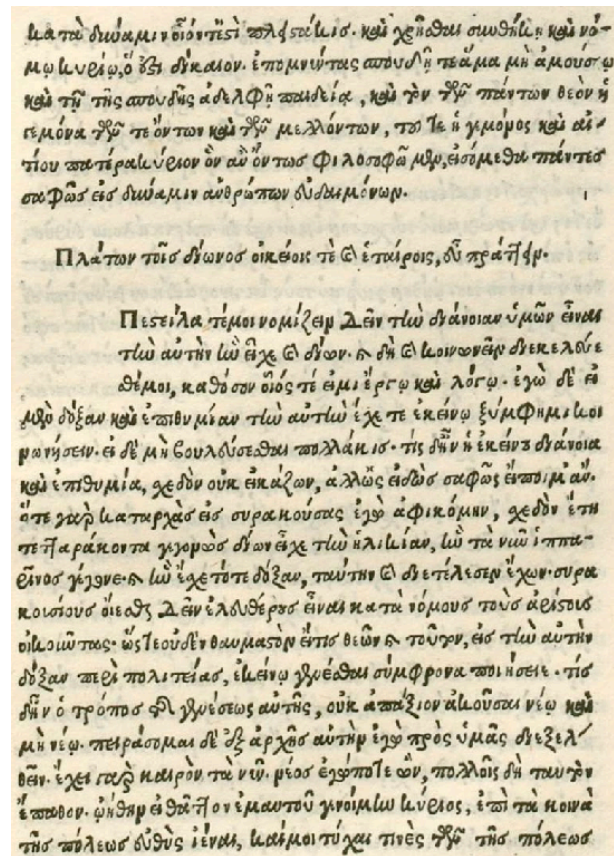 κατὰ δύναμιν οἷόν τέ ἐστὶ πλειστάκις. καὶ χρῆσθαι συνθήκῃ καὶ νό-
μῳ κυρίῳ, ὅ ἐστι δίκαιον. ἐπομνύντας σπουδῇ τε ἅμα μὴ ἀμούσῳ
καὶ τῇ τῆς σπουδῆς ἀδελφῇ παιδείᾳ, καὶ τὸν τῶν πάντων θεὸν ἡ
γεμόνα τῶν τε ὄντων καὶ τῶν μελλόντων, τοῦ τε ἡγεμόνος καὶ αἰ-
τίου πατέρα κύριον ὃν ἂν ὄντως φιλοσοφῶμεν, εἰσόμεθα πάντες
σαφῶς εἰς δύναμιν ἀνθρώπων εὐδαιμόνων.
Πλάτων τοῖς δίωνος οἰκείοις τὲ καὶ ἑταίροις, εὖ πράττειν.
Πεστείλατέ μοι νομίζειν δεῖν τὴν διάνοιαν ὑμῶν εἶναι
τὴν αὐτὴν ἣν εἶχε καὶ δίων. καὶ δὴ καὶ κοινωνεῖν διεκελεύε
σθέ μοι, καθόσον οἷός τέ εἰμι ἔργῳ καὶ λόγῳ. ἐγὼ δὲ εἰ
μὲν δόξαν καὶ ἐπιθυμίαν τὴν αὐτὴν ἔχετε ἐκείνῳ ξύμφημι κοι
νωνήσειν. εἰ δὲ μὴ βουλεύσεσθαι πολλάκις. τίς δ' ἦν ἡ ἐκείνου διάνοια
καὶ ἐπιθυμία, σχεδὸν οὐκ εἰκάζων, ἀλλ' ὡς εἰδὼς σαφῶς εἴποιμ' ἄν.
ὅτε γὰρ καταρχὰς εἰς συρακούσας ἐγὼ ἀφικόμην, σχεδὸν ἔτη
τετταράκοντα γεγονὼς δίων εἶχε τὴν ἡλικίαν, ἣν τὰ νῦν ἱππα-
ρῖνος γέγονε. καὶ ἣν ἔσχε τότε δόξαν, ταύτην καὶ διετέλεσεν ἔχων. συρα
κοισίους οἴεσθαι δεῖν ἐλευθέρους εἶναι κατὰ νόμους τοὺς ἀρίστους
οἰκοῦντας. ὥστε οὐδὲν θαυμαστὸν εἴ τις θεῶν καὶ τοῦτον, εἰς τὴν αὐτὴν
δόξαν περὶ πολιτείας, ἐκείνῳ γενέσθαι σύμφρονα ποιήσειε. τίς
δ' ἦν ὁ τρόπος τῆς γενέσεως αὐτῆς, οὐκ ἀπάξιον ἀκοῦσαι νέῳ καὶ
μὴ νέῳ. πειράσομαι δὲ ἐξ ἀρχῆς αὐτὴν ἐγὼ πρὸς ὑμᾶς διεξελ-
θεῖν. ἔχει γὰρ καιρὸν τὰ νῦν. νέος ἐγώ ποτε ὢν, πολλοῖς δὴ ταυτὸν
ἔπαθον. ᾠήθην εἰ θᾶττον ἐμαυτοῦ γενοίμην κύριος, ἐπὶ τὰ κοινὰ
τῆς πόλεως εὐθὺς ἰέναι, καί μοι τύχαι τινὲς τῶν τῆς πόλεως